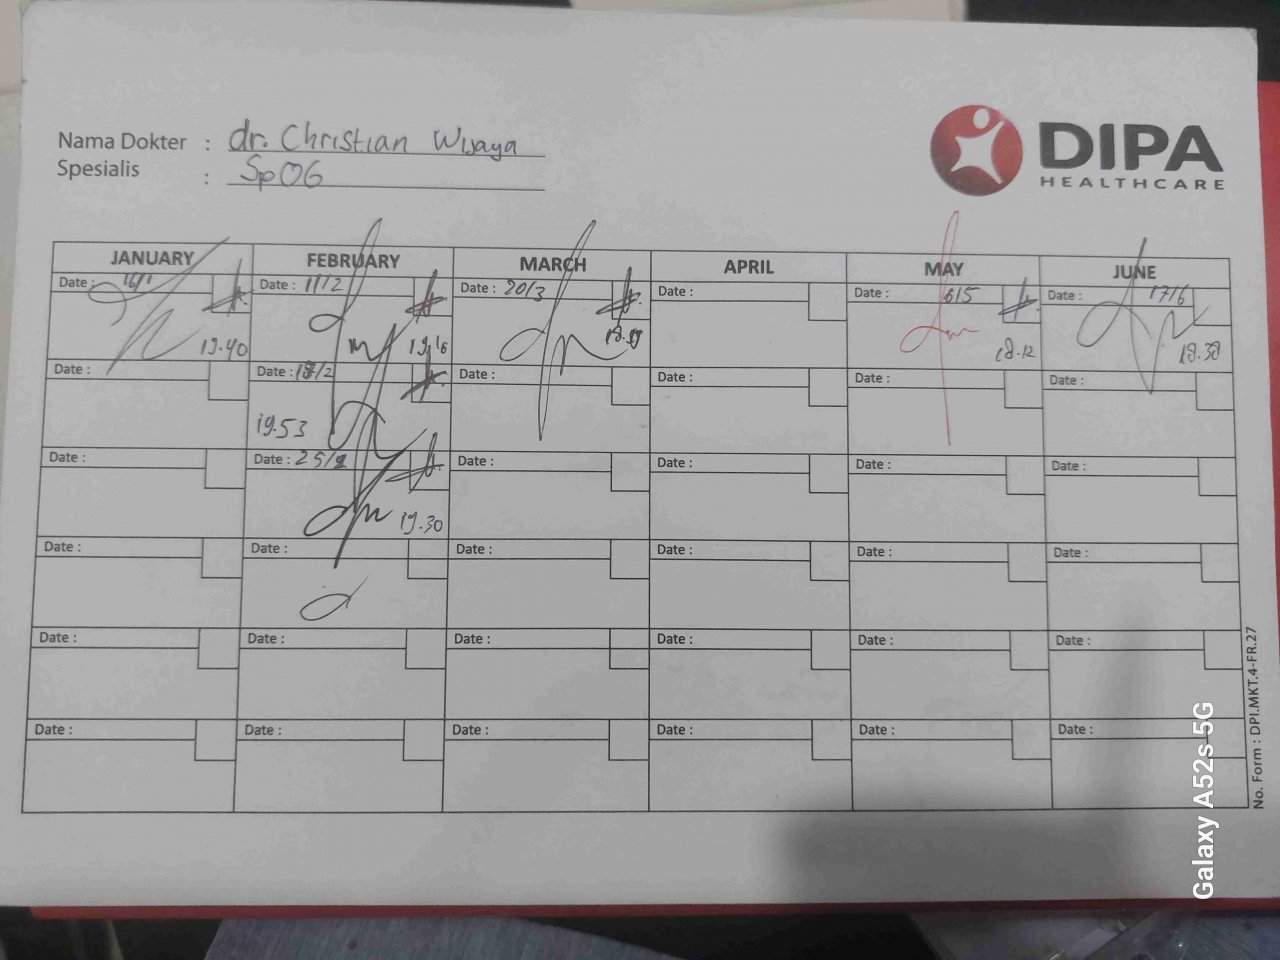 Nama Dokter : dr. Christian Wijaya
Spesialis : SpOG
DIPA
HEALTHCARE
JANUARY FEBRUARY MARCH APRIL MAY JUNE
Date : 16/1 Date : 11/2 Date : 20/3 Date : Date : 6/5 Date : 17/6
19.40 19.16 18.12 18.38
Date : Date : 18/2 Date : Date : Date : Date :
19.53
Date : Date : 25/2 Date : Date : Date : Date :
19.30
Date : Date : Date : Date : Date : Date :
Date : Date : Date : Date : Date : Date :
Date : Date : Date : Date : Date : Date :
No. Form : DPI.MKT.4-FR.27
Galaxy A52s 5G